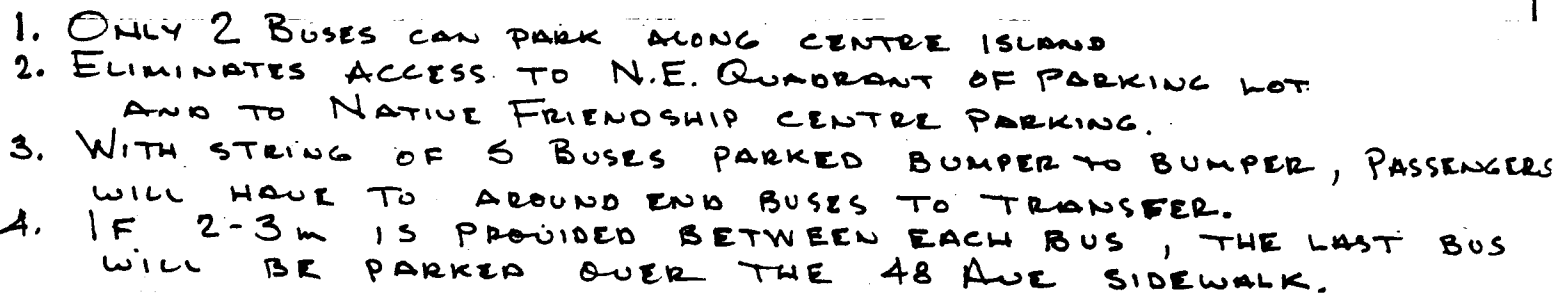 1. ONLY 2 BUSES CAN PARK ALONG CENTRE ISLAND
2. ELIMINATES ACCESS TO N.E. QUADRANT OF PARKING LOT
AND TO NATIVE FRIENDSHIP CENTRE PARKING.
3. WITH STRING OF 5 BUSES PARKED BUMPER TO BUMPER, PASSENGERS
WILL HAVE TO AROUND END BUSES TO TRANSFER.
4. IF 2-3m IS PROVIDED BETWEEN EACH BUS, THE LAST BUS
WILL BE PARKED OVER THE 48 AVE SIDEWALK.